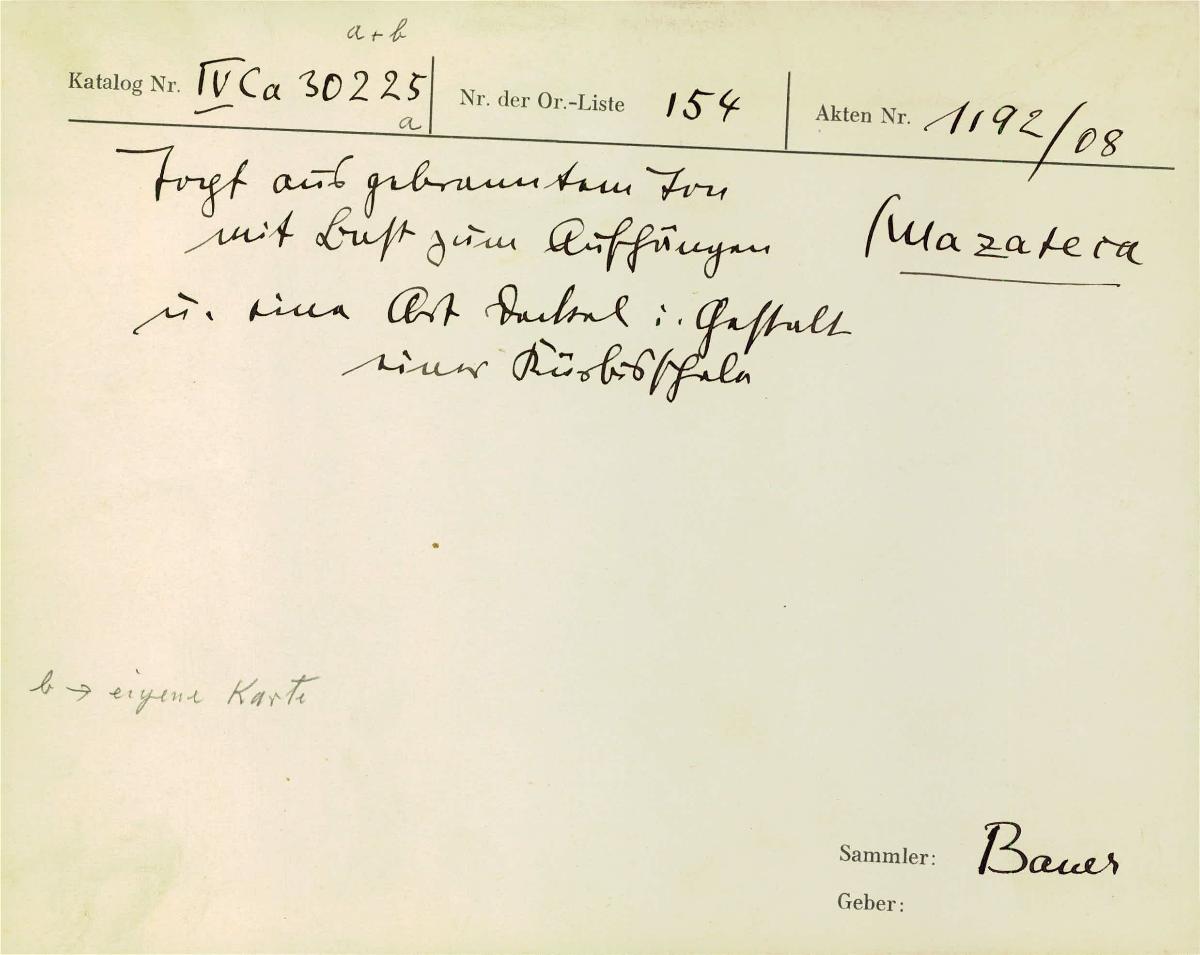 a + b
Katalog Nr. IV Ca 30225 Nr. der Or.-Liste 154 Akten Nr. 1192/08
a
Topf aus gebranntem Ton
mit Bast zum Aufhängen Mazateca
u. eine Art Deckel i. Gestalt
einer Kürbisschale
b → eigene Karte
Sammler: Bauer
Geber: